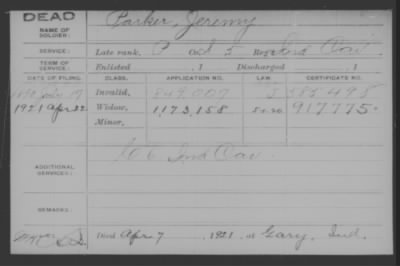 DEAD
NAME OF SOLDIER: Parker, Jeremy
SERVICE: Late rank, P Co. 5 Reg't Ind Cav
TERM OF SERVICE: Enlisted , 1 Discharged , 1
DATE OF FILING. CLASS. APPLICATION NO. LAW. CERTIFICATE NO.
Invalid, 849,007 585,495
1921 Apr 22 Widow, 1,173,158 917,775
Minor,
ADDITIONAL SERVICES: Ind Cav
REMARKS:
Died Apr 7 , 1921, at Gary, Ind.